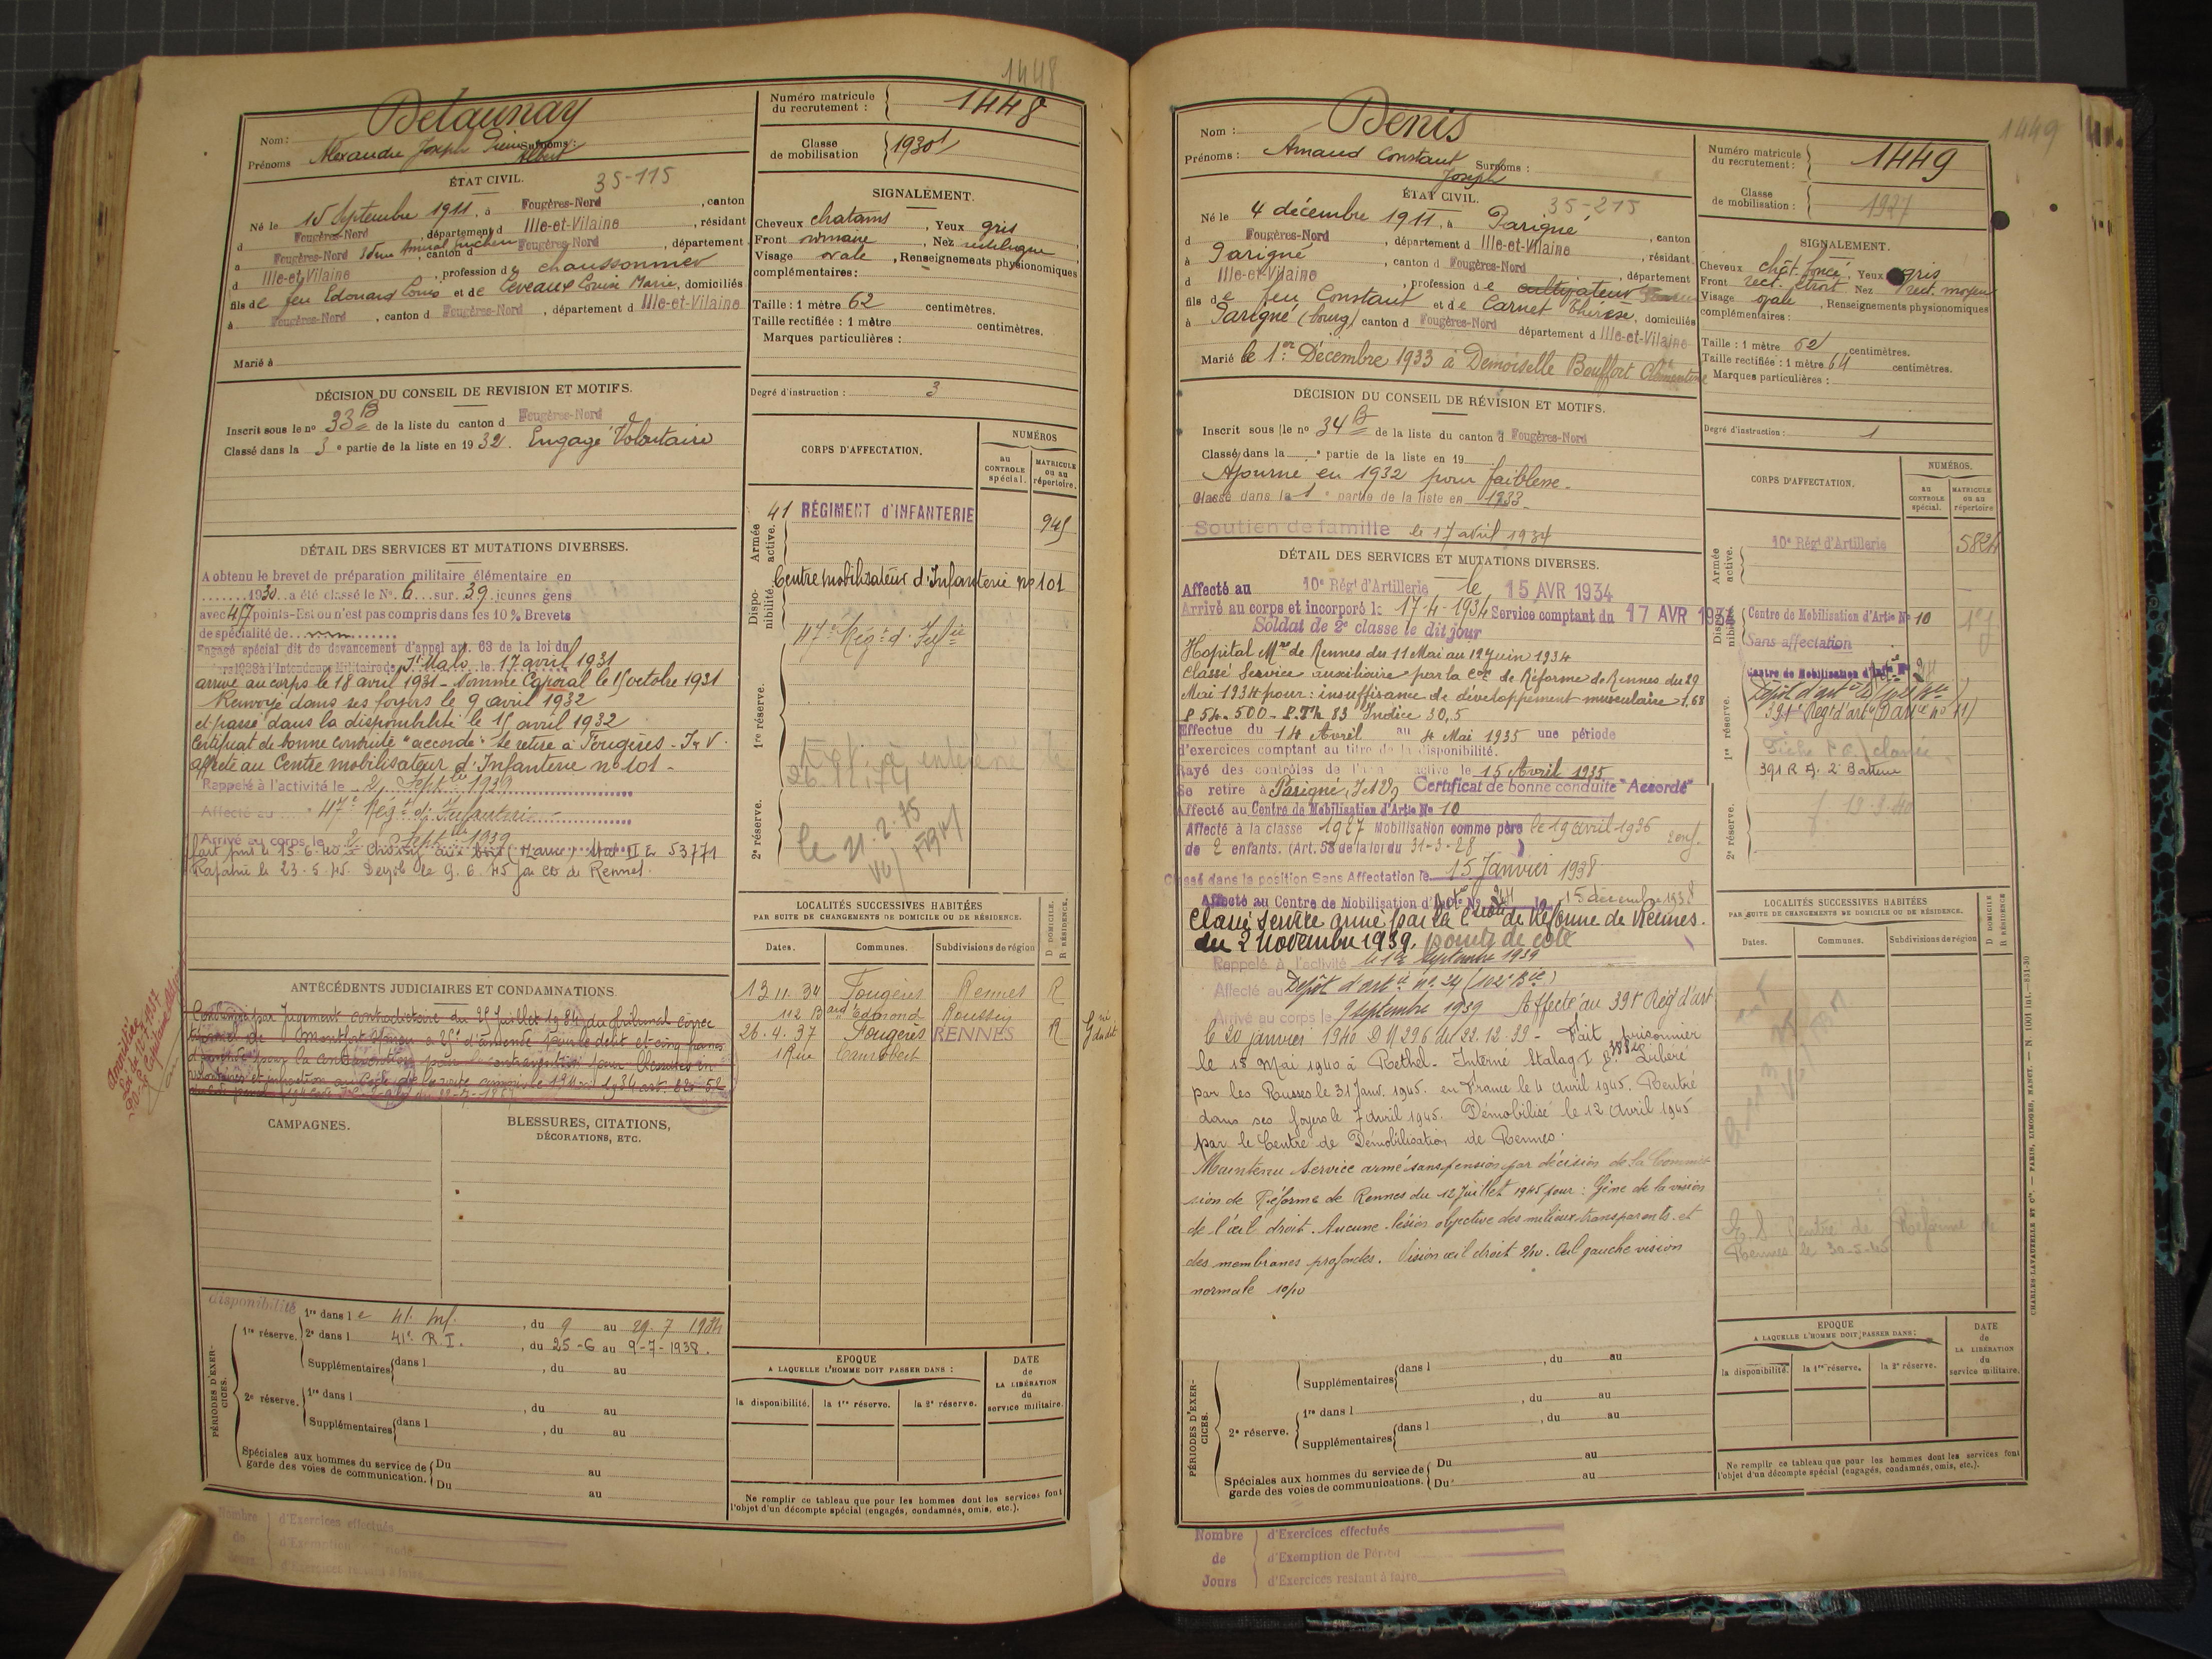 1448
Nom : Delaunay
Prénoms Alexandre Joseph Pierre Surnoms :
Albert
ÉTAT CIVIL. 35-115
Né le 15 Septembre 1911, à Fougères-Nord, canton
d Fougères-Nord, département d Ille-et-Vilaine, résidant
à Fougères-Nord, canton d Fougères-Nord, département
d Ille-et-Vilaine, profession de chaussonnier
fils de feu Edouard Louis et de Leveaux Louise Marie, domiciliés
à Fougères-Nord, canton d Fougères-Nord, département d Ille-et-Vilaine
Marié à
DÉCISION DU CONSEIL DE REVISION ET MOTIFS.
Inscrit sous le no 33 B de la liste du canton d Fougères-Nord
Classé dans la 3e partie de la liste en 1932. Engagé Volontaire
DÉTAIL DES SERVICES ET MUTATIONS DIVERSES.
A obtenu le brevet de préparation militaire élémentaire en
1930 a été classé le No. 6 sur 39 jeunes gens
avec 47 points-Est ou n'est pas compris dans les 10 % Brevets
de spécialité de
Engagé spécial dit de devancement d'appel art. 63 de la loi du
à l'Intendance Militaire de St Malo le 17 avril 1931
arrivé au corps le 18 avril 1931 - Nommé Caporal le 15 octobre 1931
Renvoyé dans ses foyers le 9 avril 1932
et passé dans la disponibilité le 15 avril 1932
Certificat de bonne conduite "accordé" se retire à Fougères - I-V.
Affecté au Centre mobilisateur d'Infanterie no 101 -
Rappelé à l'activité le 2 Septbre 1939
Affecté au 47e Régt d'Infanterie
Arrivé au corps le 2 Septbre 1939
Fait pris le 15-6-40 à Choisy aux bois (Marne) Stal II E 53771
Rapatrié le 23.5.45. Demob le 9.6.45 par CD de Rennes.
ANTÉCÉDENTS JUDICIAIRES ET CONDAMNATIONS
Condamné par Jugement contradictoire du 25 Juillet 1934 du tribunal correc
Amnistié
Loi du 12.7.1937
CAMPAGNES.
BLESSURES, CITATIONS,
DÉCORATIONS, ETC.
PÉRIODES D'EXERCICES.
disponibilité 1re dans le 41. Inf., du 9 au 29.7 1934
1re réserve. 2e dans l 41e R.I., du 25-6 au 9-7-1938.
Supplémentaires dans l , du au
2e réserve. 1re dans l , du au
Supplémentaires dans l , du au
Spéciales aux hommes du service de garde des voies de communication. Du au
Du au
Nombre de Jours
d'Exercices effectués
d'Exemption de Période
d'Exercices restant à faire
Numéro matricule du recrutement : 1448
Classe de mobilisation 1930
SIGNALEMENT.
Cheveux chatains, Yeux gris
Front , Nez rectiligne
Visage ovale, Renseignements physionomiques
complémentaires :
Taille : 1 mètre 62 centimètres.
Taille rectifiée : 1 mètre centimètres.
Marques particulières :
Degré d'instruction : 3
CORPS D'AFFECTATION.
NUMÉROS
au CONTROLE spécial.
MATRICULE ou au répertoire.
Armée active.
41 RÉGIMENT d'INFANTERIE 945
Disponibilité.
Centre mobilisateur d'Infanterie no 101
47e Régt d'Infie
1re réserve.
26.11.74
2e réserve.
le 21.2.75
LOCALITÉS SUCCESSIVES HABITÉES
PAR SUITE DE CHANGEMENTS DE DOMICILE OU DE RÉSIDENCE.
D DOMICILE. R RÉSIDENCE.
Dates. Communes. Subdivisions de région
13.11.34 Fougères Rennes R
112 Bard Edmond Roussey
26.4.37 Fougères RENNES R
1 Rue Canrobert
EPOQUE
A LAQUELLE L'HOMME DOIT PASSER DANS :
la disponibilité. la 1re réserve. la 2e réserve.
DATE de LA LIBÉRATION du service militaire.
Ne remplir ce tableau que pour les hommes dont les services font
l'objet d'un décompte spécial (engagés, condamnés, omis, etc.).
1449
Nom : Denis
Prénoms : Amand Constant Surnoms :
Joseph
ÉTAT CIVIL. 35-215
Né le 4 décembre 1911, à Parigné, canton
d Fougères-Nord, département d Ille-et-Vilaine, résidant
à Parigné, canton d Fougères-Nord, département
d Ille-et-Vilaine, profession de cultivateur
fils de feu Constant et de Carnet Thérèse, domiciliés
à Parigné (bourg) canton d Fougères-Nord département d Ille-et-Vilaine
Marié le 1er Décembre 1933 à Demoiselle Bouffort Clémentine
DÉCISION DU CONSEIL DE RÉVISION ET MOTIFS.
Inscrit sous le no 34 B de la liste du canton d Fougères-Nord
Classé dans la e partie de la liste en 19
Ajourné en 1932 pour faiblesse.
Classé dans la 1e partie de la liste en 1933
Soutien de famille le 17 avril 1934
DÉTAIL DES SERVICES ET MUTATIONS DIVERSES.
Affecté au 10e Régt d'Artillerie le 15 AVR 1934
Arrivé au corps et incorporé le 17-4-1934 Service comptant du 17 AVR 1934
Soldat de 2e classe le dit jour
Hopital Mre de Rennes du 11 Mai au 12 Juin 1934
Classé Service auxiliaire par la Con de Réforme de Rennes du 29
Mai 1934 pour : insuffisance de développement musculaire 1,63
P 54.500 - P.Th 83 Indice 30,5
Effectue du 14 Avril au 4 Mai 1935 une période
d'exercices comptant au titre de la disponibilité.
Rayé des contrôles de l'armée active le 15 Avril 1935
Se retire à Parigné, I et V Certificat de bonne conduite "Accordé"
Affecté au Centre de Mobilisation d'Artie No 10
Affecté à la classe 1927 Mobilisation comme père le 19 avril 1936
de 2 enfants. (Art. 58 de la loi du 31-3-28)
Classé dans la position Sans Affectation le 15 Janvier 1938
Affecté au Centre de Mobilisation d'Artie No 24 le 15 décembre 1938
Classé service armé par la Con de Réforme de Rennes.
du 2 novembre 1939.
Rappelé à l'activité le 1er Septembre 1939
Affecté au Dépôt d'artie no 24 (102e Bie)
Arrivé au corps le 9 septembre 1939 Affecté au 391e Rég d'art
le 20 janvier 1940 D M 296 du 22.12.39 - Fait prisonnier
le 18 Mai 1940 à Rethel - Interné Stalag I B. Libéré
par les Russes le 31 Janv. 1945. en France le 4 avril 1945. Rentré
dans ses foyers le 7 avril 1945. Démobilisé le 12 Avril 1945
par le Centre de Démobilisation de Rennes.
Maintenu Service armé sans pension par décision de la Commis
sion de Réforme de Rennes du 12 Juillet 1945 pour : Gêne de la vision
de l'œil droit. Aucune lésion objective des milieux transparents et
des membranes profondes. Vision œil droit 2/10. Œil gauche vision
normale 10/10
PÉRIODES D'EXERCICES.
Supplémentaires dans l , du au
, du au
2e réserve. 1re dans l , du au
Supplémentaires dans l
Spéciales aux hommes du service de garde des voies de communications. Du au
Du au
Nombre de Jours
d'Exercices effectués
d'Exemption de Période
d'Exercices restant à faire
Numéro matricule du recrutement : 1449
Classe de mobilisation : 1927
SIGNALEMENT.
Cheveux chât. foncé, Yeux gris
Front rect. étroit Nez rect. moyen
Visage ovale, Renseignements physionomiques
complémentaires :
Taille : 1 mètre 62 centimètres.
Taille rectifiée : 1 mètre 64 centimètres.
Marques particulières :
Degré d'instruction : 1
CORPS D'AFFECTATION.
NUMÉROS.
au CONTROLE spécial.
MATRICULE ou au répertoire
Armée active.
10e Régt d'Artillerie 5824
Disponibilité.
Centre de Mobilisation d'Artie No 10
Sans affectation
Centre de Mobilisation d'Artie No 24
1re réserve.
391e Régt d'art
391 R A. 2e Batterie
2e réserve.
LOCALITÉS SUCCESSIVES HABITÉES
PAR SUITE DE CHANGEMENTS DE DOMICILE OU DE RÉSIDENCE.
D DOMICILE R RÉSIDENCE
Dates. Communes. Subdivisions de région
Centre de Réforme de
Rennes le 30-5-45
EPOQUE
A LAQUELLE L'HOMME DOIT PASSER DANS :
la disponibilité. la 1re réserve. la 2e réserve.
DATE de LA LIBÉRATION du service militaire.
Ne remplir ce tableau que pour les hommes dont les services font
l'objet d'un décompte spécial (engagés, condamnés, omis, etc.).
CHARLES-LAVAUZELLE ET Cie. — PARIS, LIMOGES, NANCY. — N. 1001 Int.—831-30